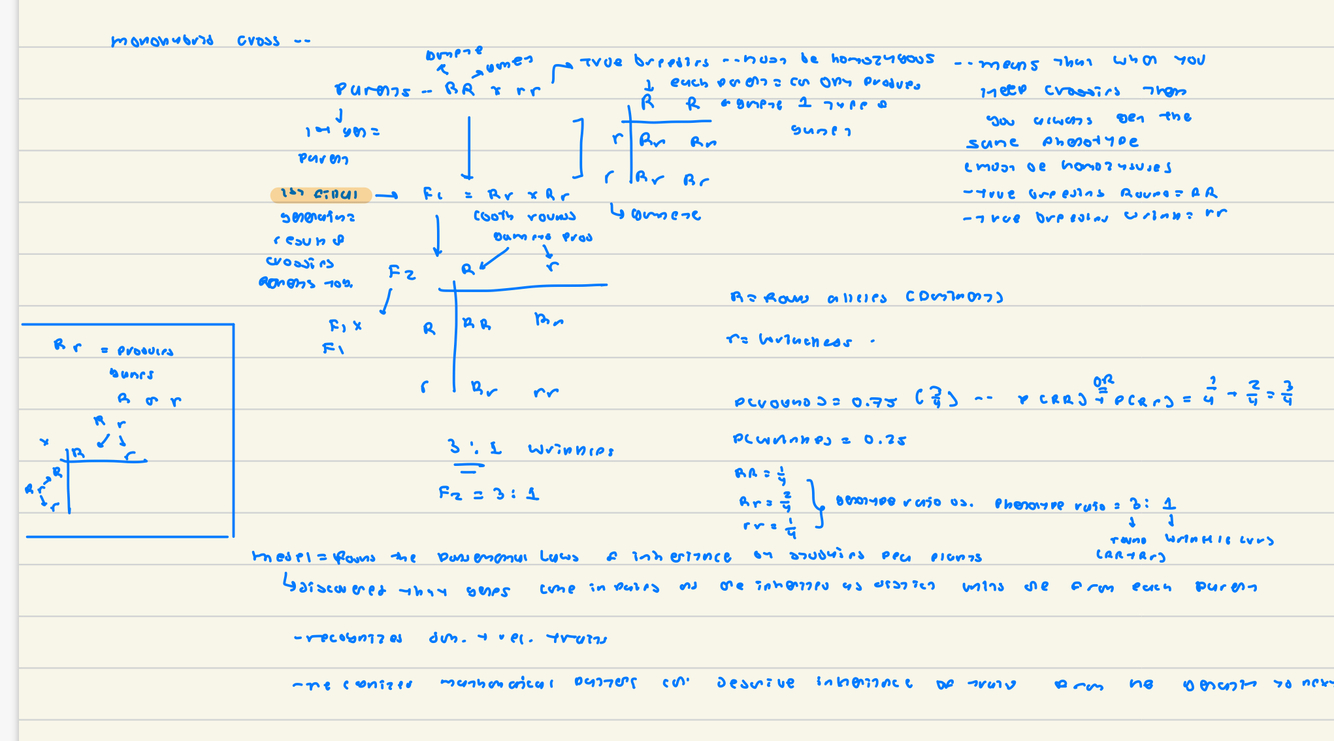 monohybrid cross --
gamete
gamete
Parents - RR x rr
true breeding -- must be homozygous -- means that when you
each parent = can only produce
gamete 1 type of
keep crossing them
you always get the
same phenotype
(must be homozygous
- true breeding Round = RR
- true breeding wrink = rr
1st gen =
parent
R R
r Rr Rr
r Rr Rr
gamete
1st filial → F1 = Rr x Rr
generation
result of
crossing
parents
(both rounds
gametes prod
F2 R r
R RR Rr
r Rr rr
F1 x
F1
R = Round alleles (Dominant)
r = wrinkness
Rr = produces
gametes
R or r
R r
x
R r
Rr R
r
P(round) = 0.75 (3/4) -- P(RR) OR + P(Rr) = 1/4 + 2/4 = 3/4
P(wrinkled) = 0.25
3 : 1 wrinkled
F2 = 3 : 1
RR = 1/4
Rr = 2/4
rr = 1/4
genotype ratio vs. phenotype ratio = 3 : 1
round wrinkle (rr)
(RR+Rr)
mendel = found the fundamental laws of inheritance by studying pea plants
discovered that genes come in pairs as are inherited as distinct units one from each parent
- recognized dom. + rec. traits
- recognized mathematical patterns can describe inheritance of traits from one to next